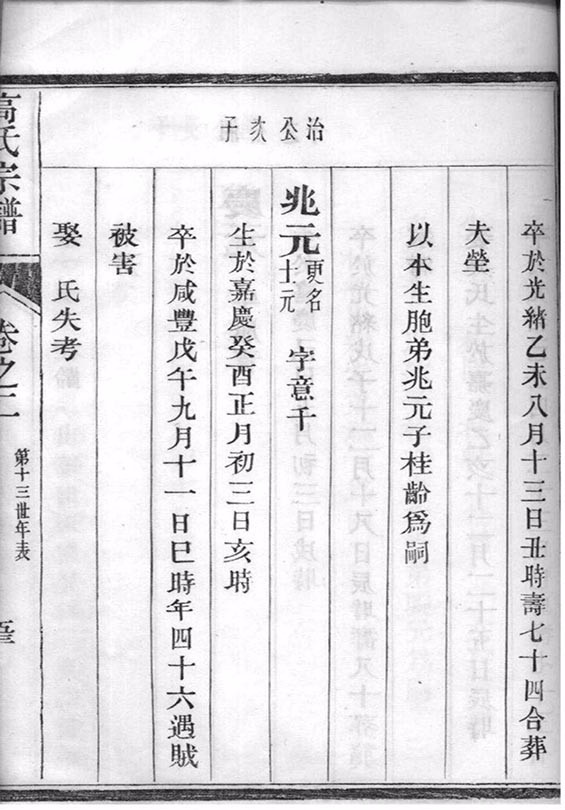 卒於光緒乙未八月十三日丑時壽七十四合葬
夫塋
以本生胞弟兆元子桂齡爲嗣
治公次子
兆元 更名士元 字意千
生於嘉慶癸酉正月初三日亥時
卒於咸豐戊午九月十一日巳時年四十六遇賊
被害
娶 氏失考
高氏宗譜
卷之二
第十三世年表